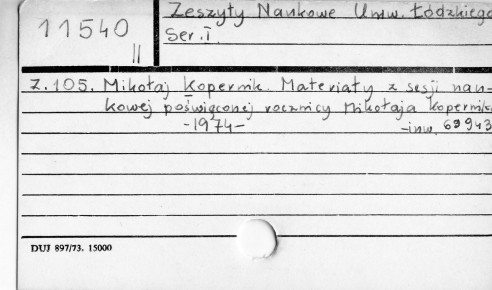 11540
II
Zeszyty Naukowe Uniw. Łódzkiego
Ser. I.
Z. 105. Mikołaj Kopernik. Materiały z sesji nau-
kowej poświęconej rocznicy Mikołaja Kopernika
-1974-
-inw. 69943
DUJ 897/73. 15000